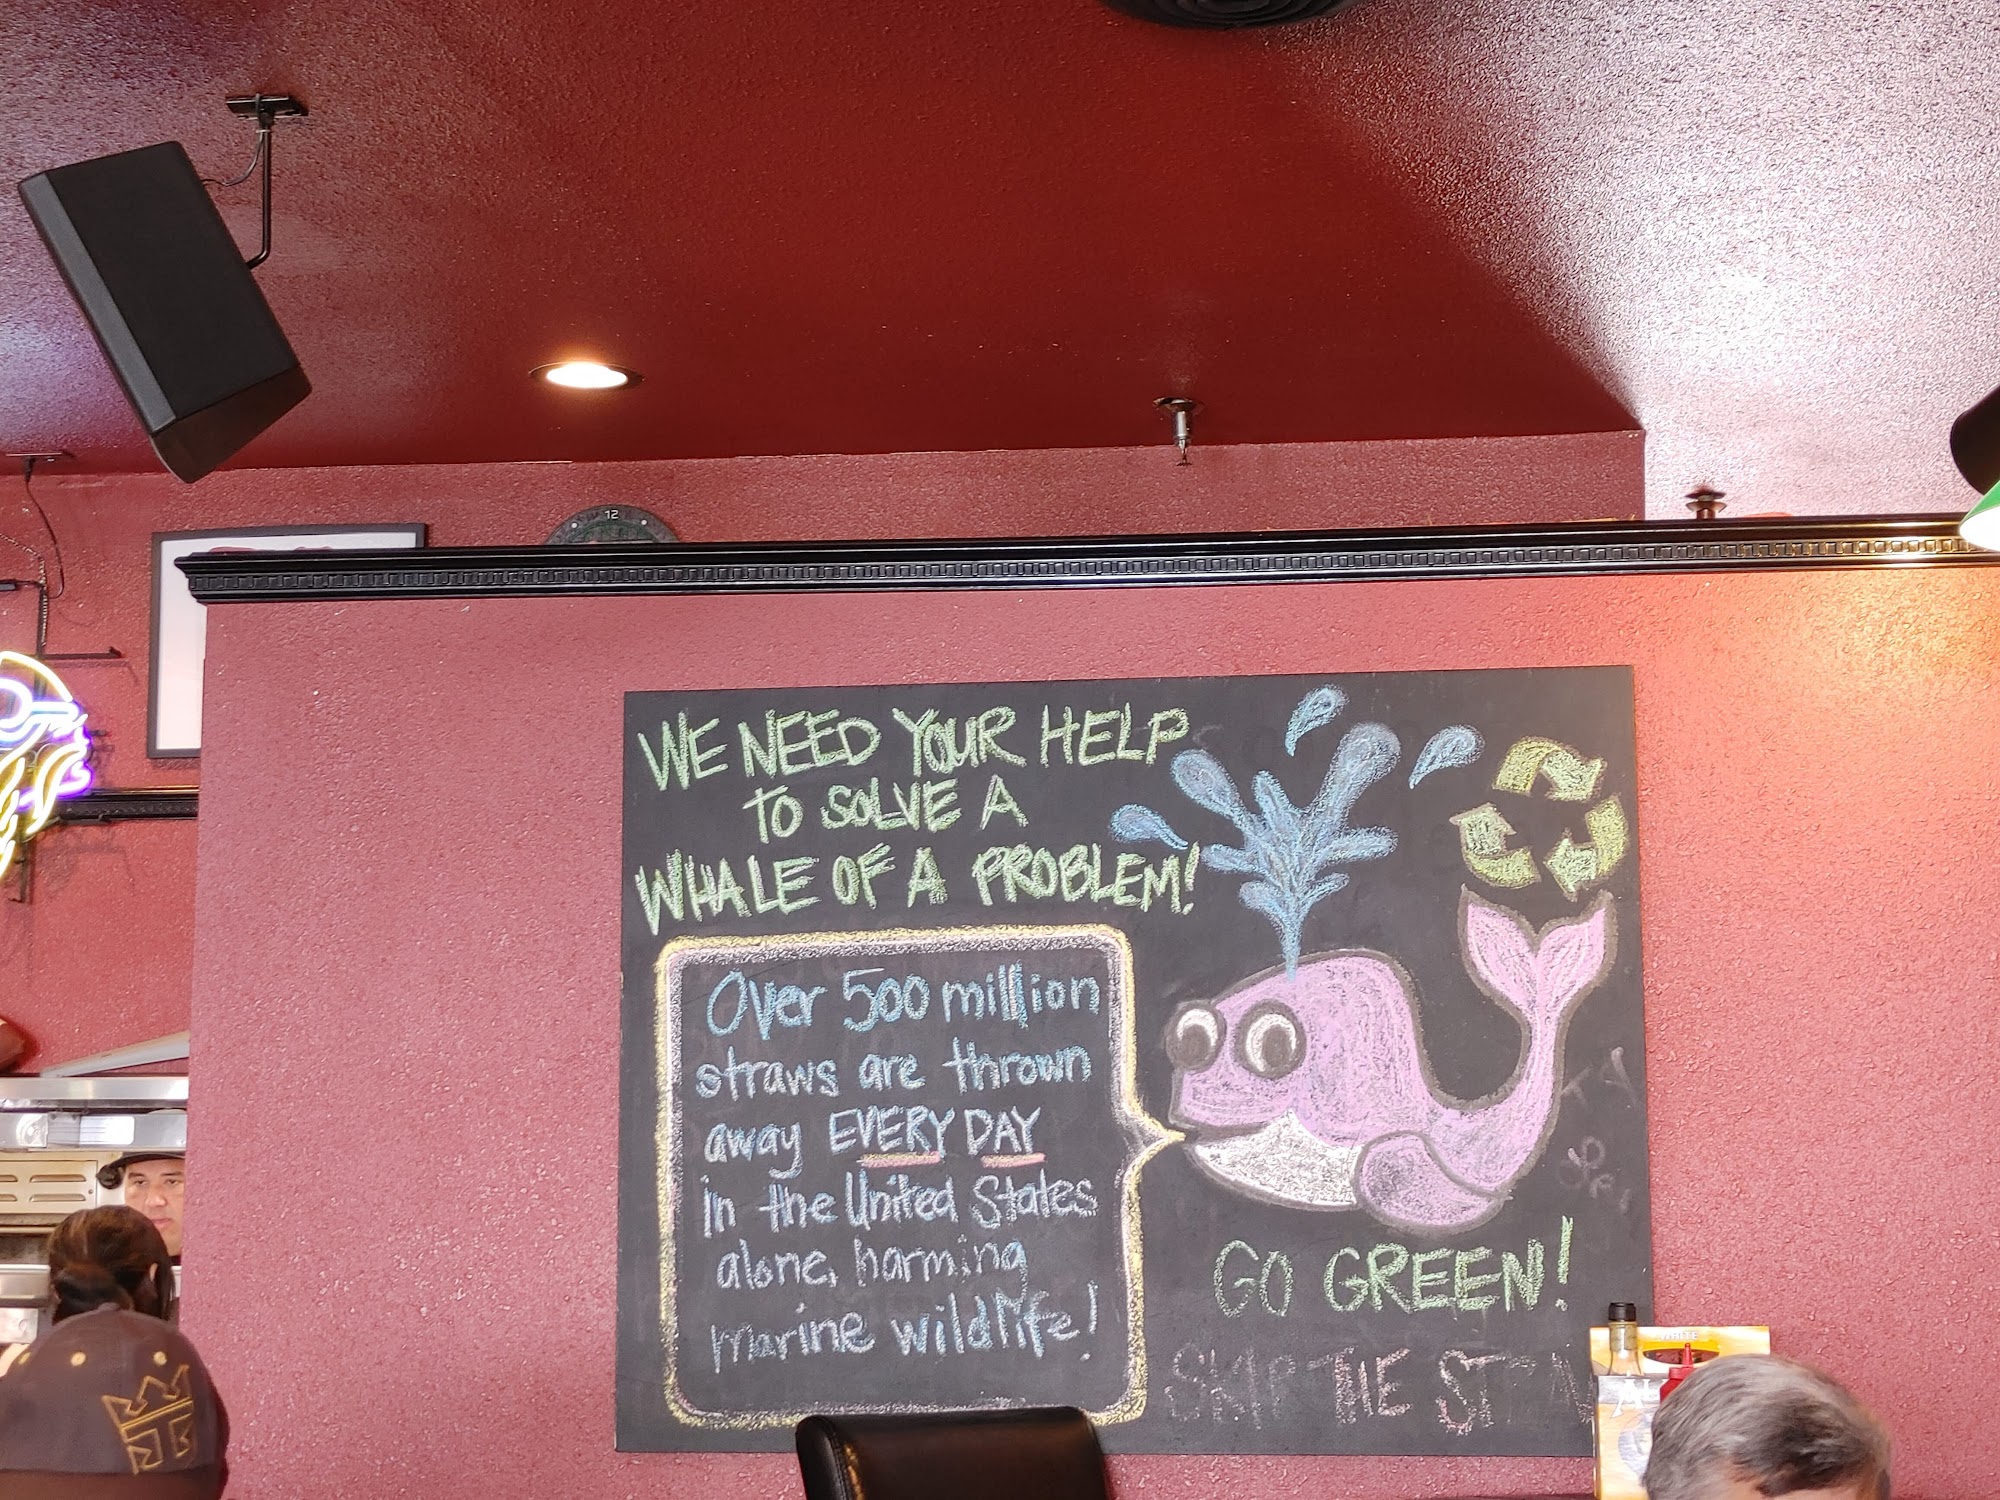 12
WE NEED YOUR HELP
TO SOLVE A
WHALE OF A PROBLEM!
Over 500 million
straws are thrown
away EVERY DAY
in the United States
alone, harming
marine wildlife!
GO GREEN!
SKIP THE
WHITE